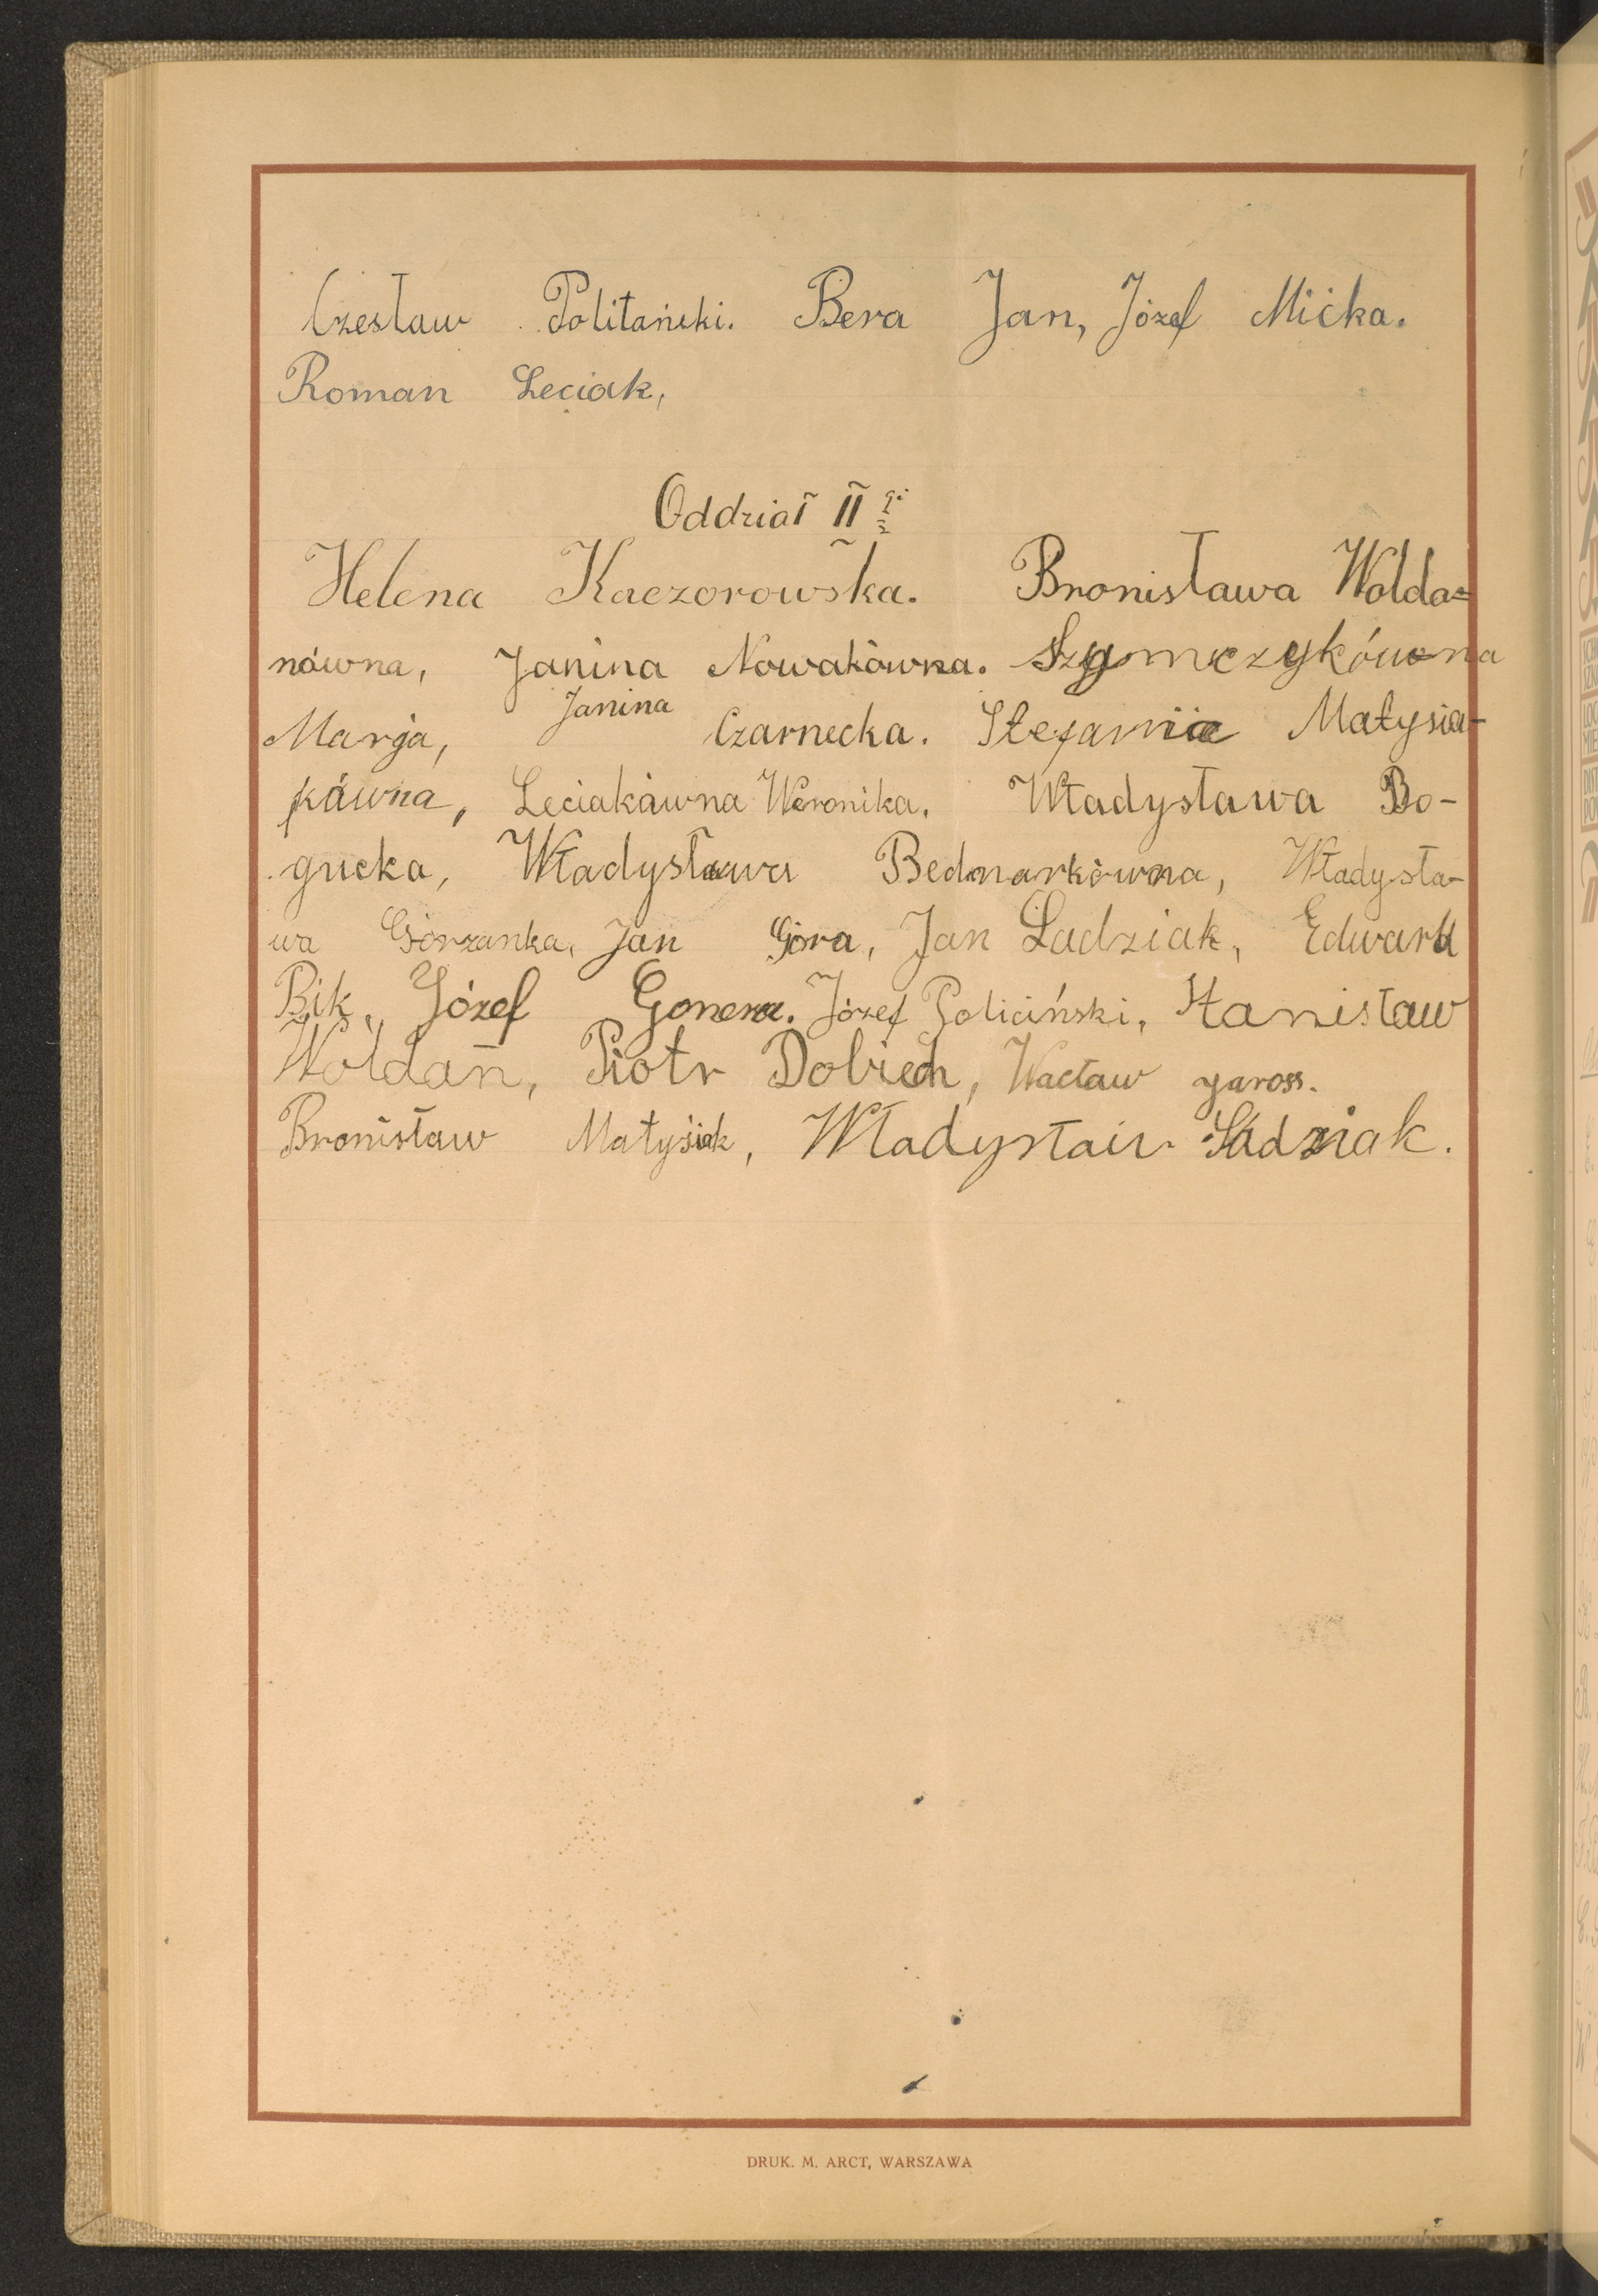 Czesław Politański. Bera Jan, Józef Mićka.
Roman Leciak,
Oddział II gi
Helena Kaczorowska. Bronisława Wolda=
nówna, Janina Nowakówna. Szymczykówna
Marja, Janina Czarnecka. Stefania Matysia-
kówna, Leciakówna Weronika, Władysława Bo-
gucka, Władysława Bednarkówna, Władysła-
wa Górzanka, Jan Góra, Jan Ładziak, Edward
Bik, Józef Gonera. Józef Policiński, Stanisław
Woldan, Piotr Dobiech, Wacław Jaross.
Bronisław Matysiak, Władysław
DRUK. M. ARCT, WARSZAWA